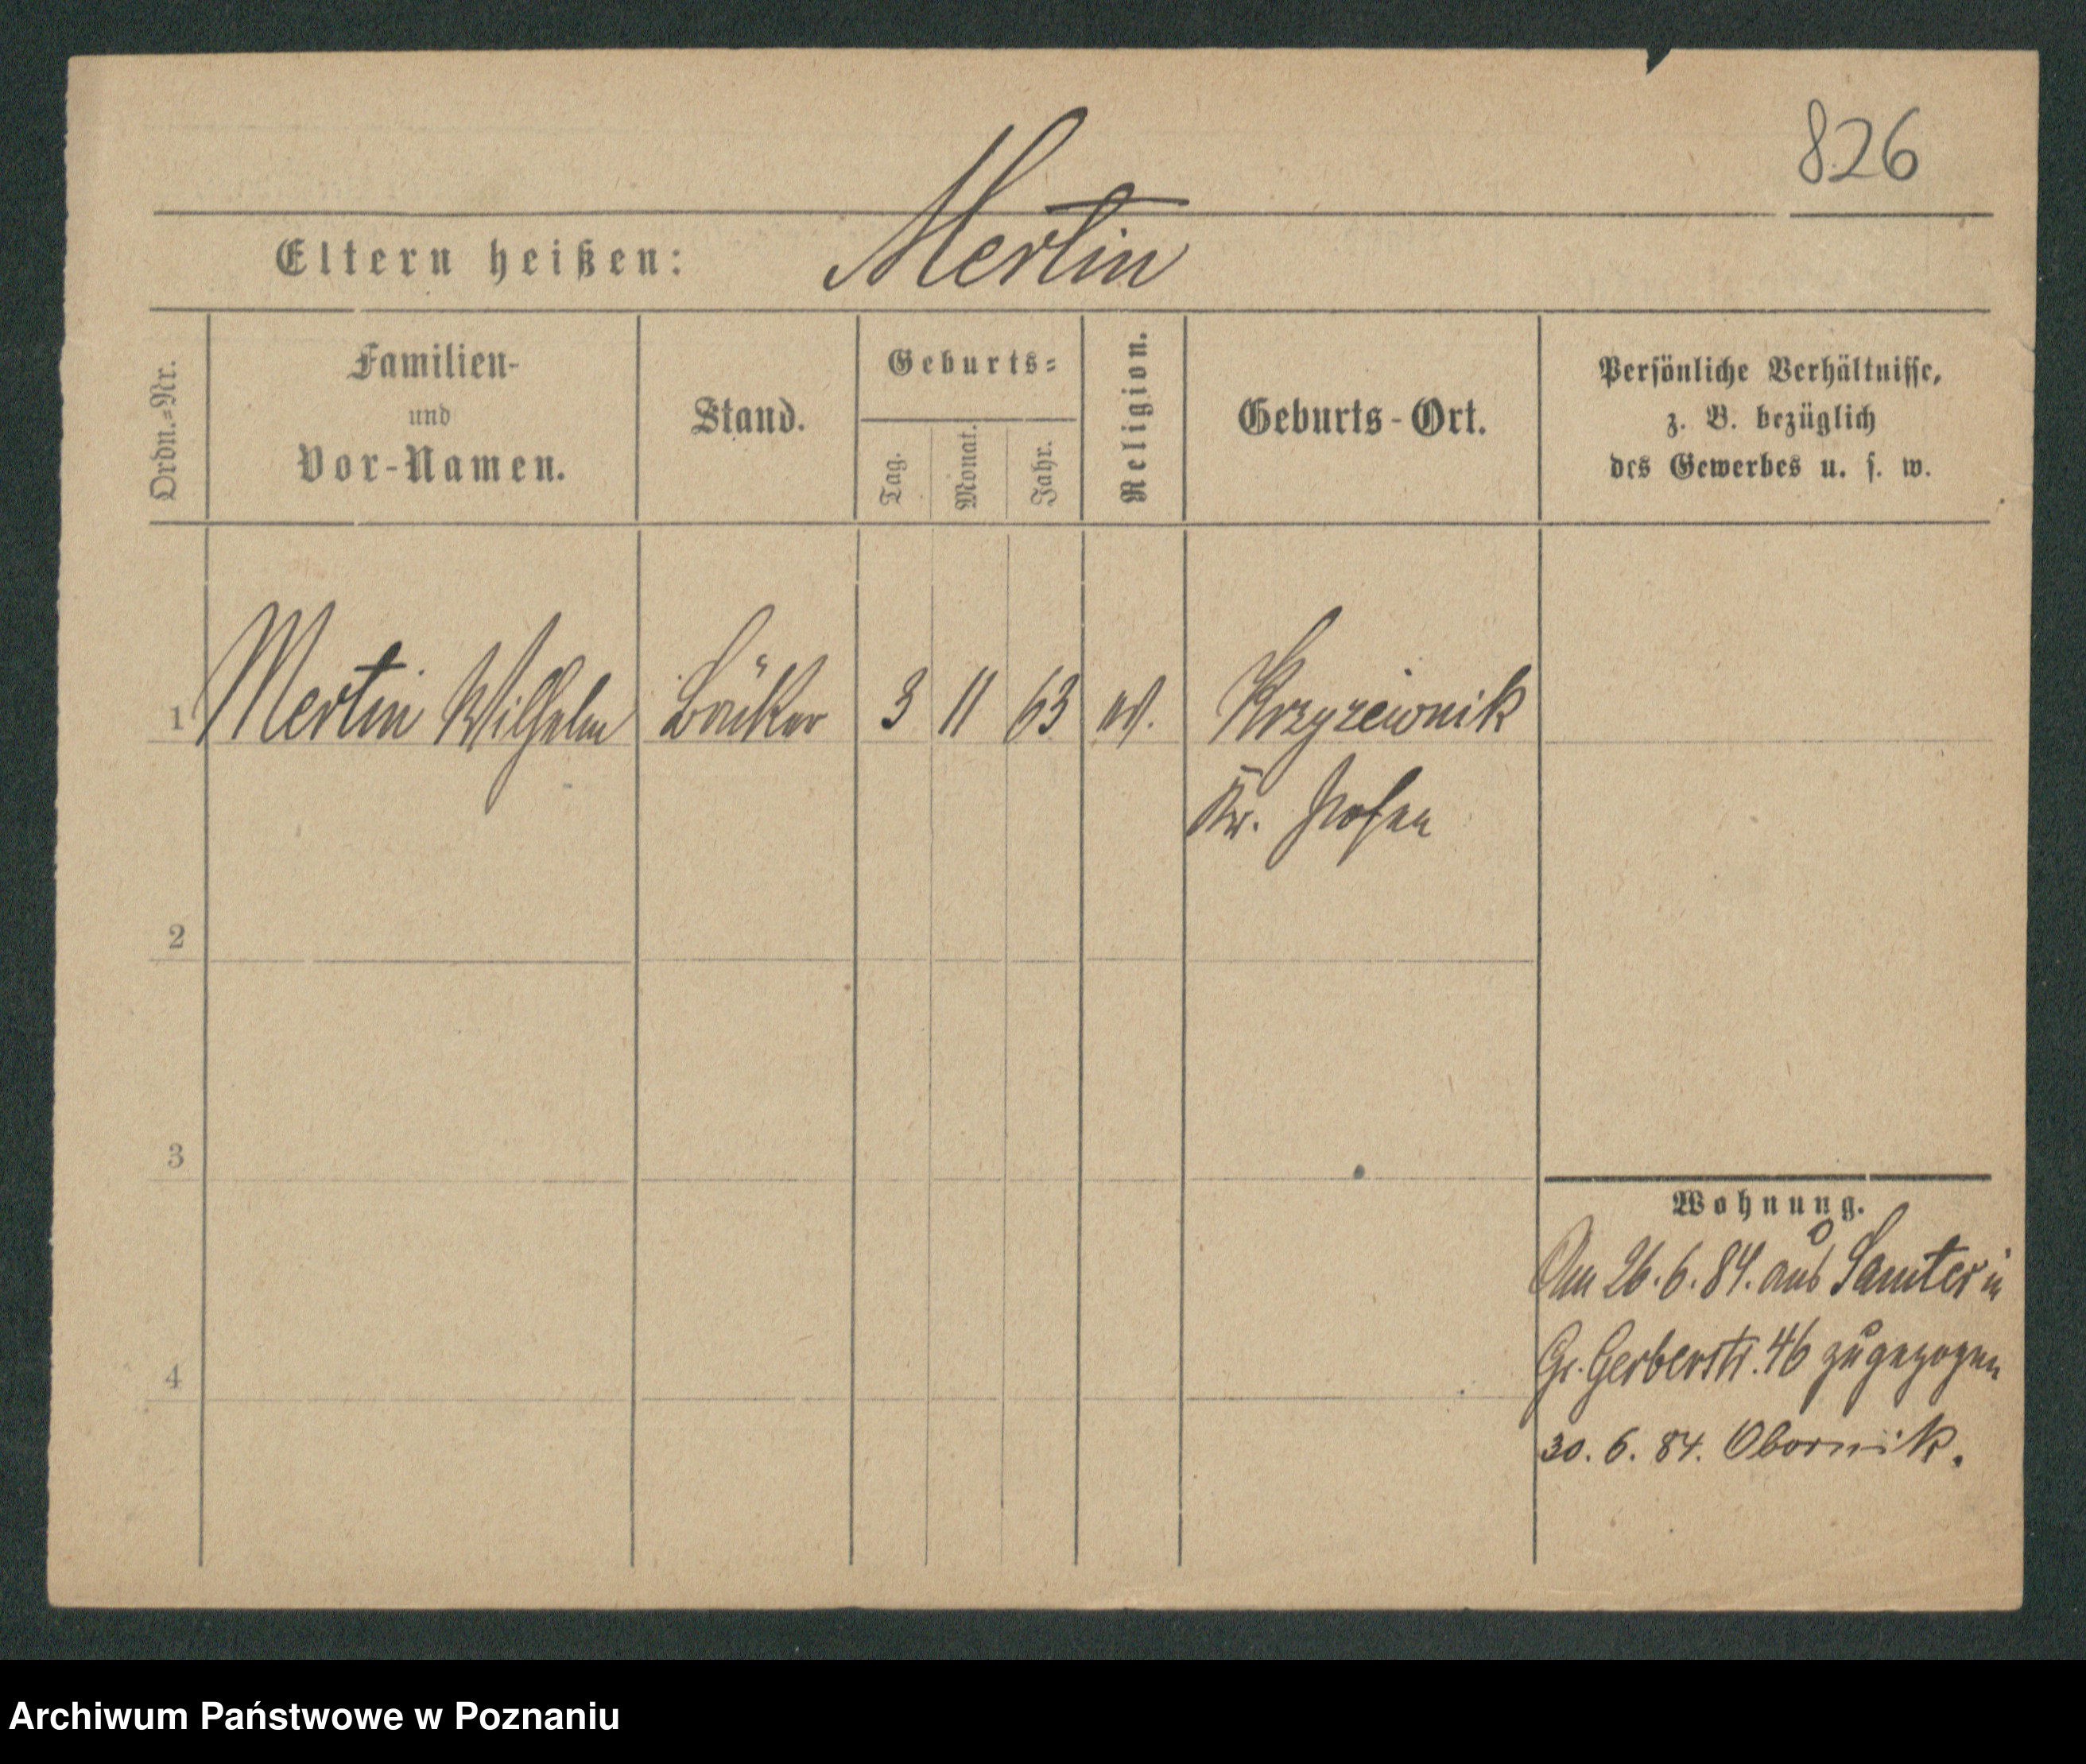 826
Eltern heißen: Mertin
Ordn.=Nr.
Familien-
und
Vor-Namen.
Stand.
Geburts=
Tag.
Monat.
Jahr.
Religion.
Geburts-Ort.
Persönliche Verhältnisse,
z. B. bezüglich
des Gewerbes u. s. w.
1 Mertin Wilhelm Bäcker 3 11 63 ev. Krzyzewnik
Kr. Posen
2
3
Wohnung.
Am 26.6.84. aus Samter in
Gr. Gerberstr. 46 zugezogen
4
30. 6. 84. Obornik.
Archiwum Państwowe w Poznaniu